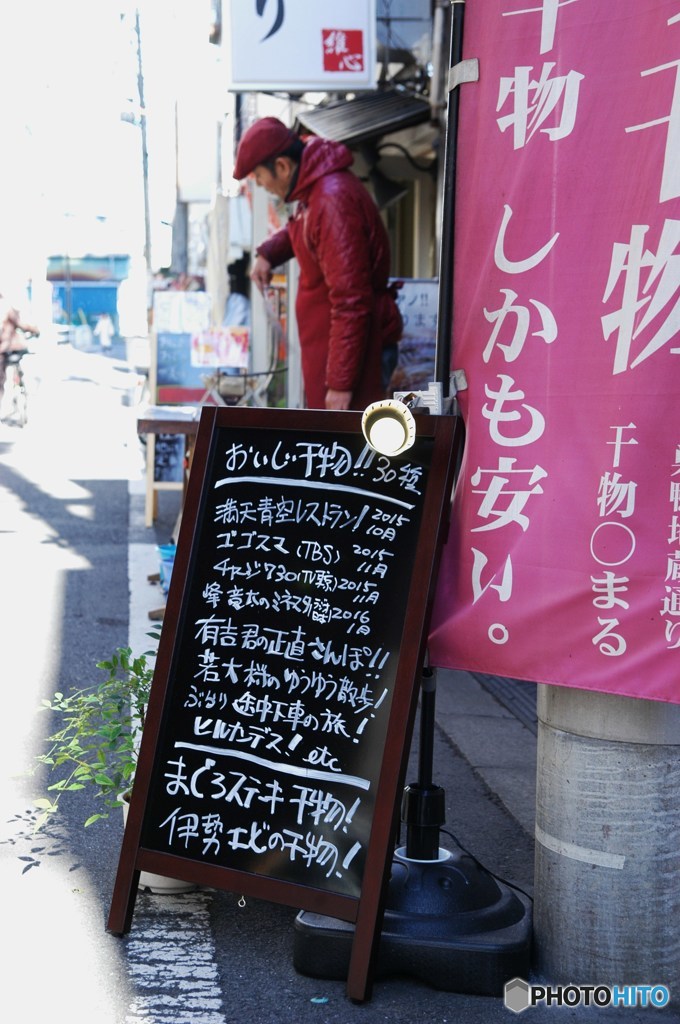 り
雄心
干物
しかも安い。
干物
干物〇まる
巣鴨地蔵通り
おいしい干物!! 30種
満天青空レストラン! 2015 10月
ゴゴスマ(TBS) 2015 11月
チャージ730(TV東京)2015 11月
峰竜太のミネスタ 2016 1月
有吉君の正直さんぽ!!
若大将のゆうゆう散歩!
ぶらり途中下車の旅!
ヒルナンデス! etc
まぐろステーキ干物!
伊勢エビの干物!
PHOTOHITO